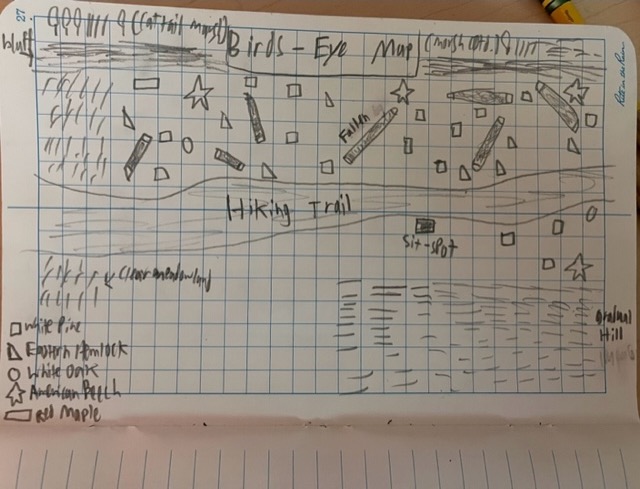 27.
(Cattail marsh)
Birds-Eye Map
(marsh cotd.)
bluff
Rite in the Rain
Fallen
Hiking Trail
Sit-spot
Clear meadowland
Gradual
Hill
White Pine
Eastern Hemlock
White Oak
American Beech
Red Maple